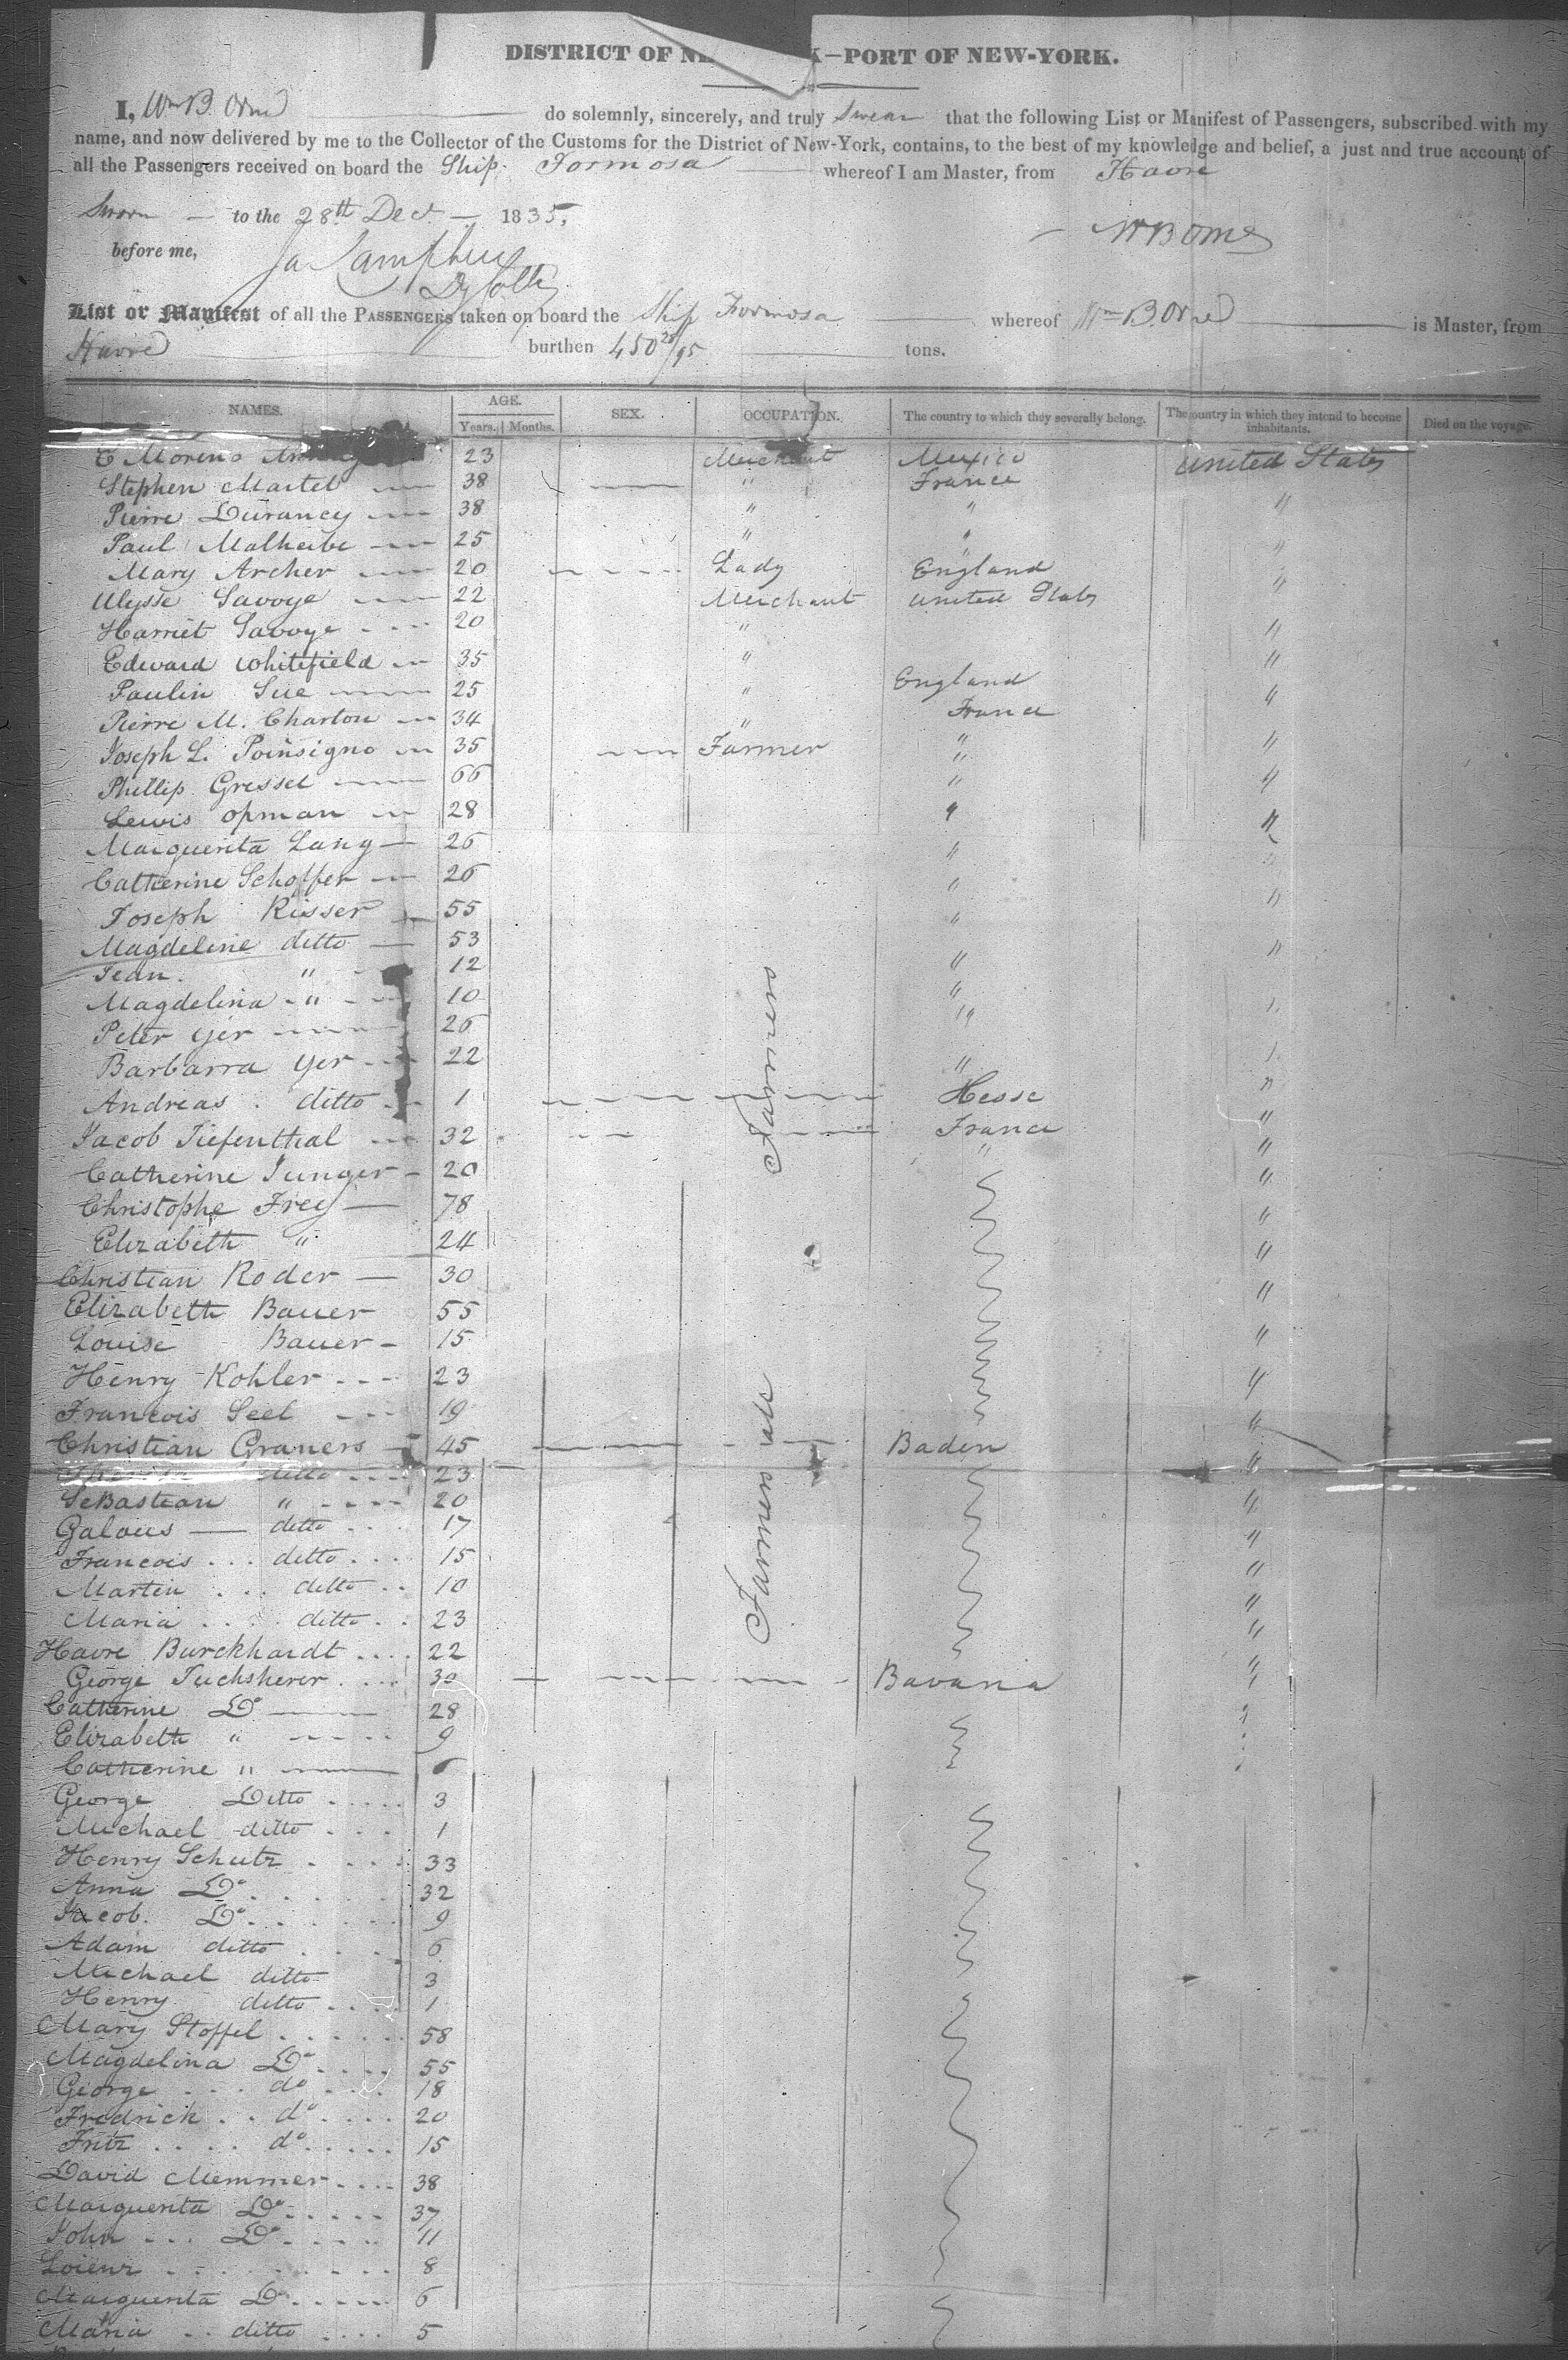 DISTRICT OF NE K—PORT OF NEW-YORK.
I, Wm B. Orne do solemnly, sincerely, and truly Swear that the following List or Manifest of Passengers, subscribed with my
name, and now delivered by me to the Collector of the Customs for the District of New-York, contains, to the best of my knowledge and belief, a just and true account of
all the Passengers received on board the Ship Formosa whereof I am Master, from Havre
Sworn to the 28th Decr 1835,
before me,
WB Orne
Dy Coll
List or Manifest of all the PASSENGERS taken on board the Ship Formosa whereof Wm B. Orne is Master, from
Havre burthen 450 28/95 tons.
NAMES. AGE. Years. Months. SEX. OCCUPATION. The country to which they severally belong. The country in which they intend to become inhabitants. Died on the voyage.
C Moreno 23 Merchant Mexico United States
Stephen Martel 38 " France
Pierre Durancy 38 " " "
Paul Malherbe 25 " " "
Mary Archer 20 Lady England "
Ulysse Savoye 22 Merchant United States
Harriet Savoye 20 " "
Edward Whitefield 35 " "
Paulin Sue 25 " England "
Pierre M. Charton 34 " France
Joseph L. Poinsigno 35 Farmer " "
Phillip Gressel 66 " "
Lewis Opman 28 " "
Marguerita Lang 26 " "
Catherine Schoffer 26 " "
Joseph Risser 55 "
Magdeline ditto 53 "
Jean " 12 "
Magdelina " 10 " "
Peter Yer 26 "
Barbarra Yer 22 " "
Andreas ditto 1 Hesse "
Farmers
Jacob Tiefenthal 32 France "
Catherine Junger 20 " "
Christophe Frey 78 "
Elizabeth " 24 "
Christian Roder 30 "
Elizabeth Bauer 55 "
Louise Bauer 15 "
Henry Kohler 23 "
Francois Seel 19 "
Christian Graners 45 Baden "
ditto 23
Sebastian " 20 "
Galous ditto 17 "
Francois ditto 15 "
Martin ditto 10 "
Maria ditto 23 "
Farmers
Havre Burckhardt 22 "
George Tuchsherer 30 Bavaria "
Catherine Do 28 "
Elizabeth " 9
Catherine " 6
George Ditto 3
Michael ditto 1
Henry Schutz 33
Anna Do 32
Jacob Do 9
Adam ditto 6
Michael ditto 3
Henry ditto 1
Mary Stoffel 58
Magdelina Do 55
George do 18
Fredrick do 20
Fritz do 15
David Memmer 38
Marguerita Do 37
John Do 11
Lorenz 8
Marguerita Do 6
Maria ditto 5